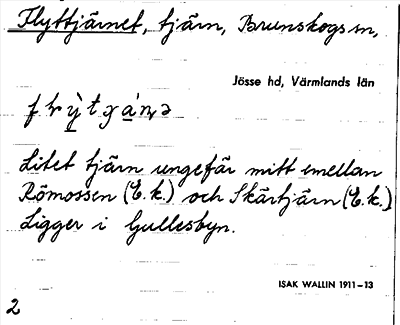 Flyttjärnet, tjärn, Brunskogs sn,
Jösse hd, Värmlands län
Litet tjärn ungefär mitt emellan
Römossen (E.k.) och Skärtjärn (E.k.)
Ligger i Gullesbyn.
ISAK WALLIN 1911–13
2